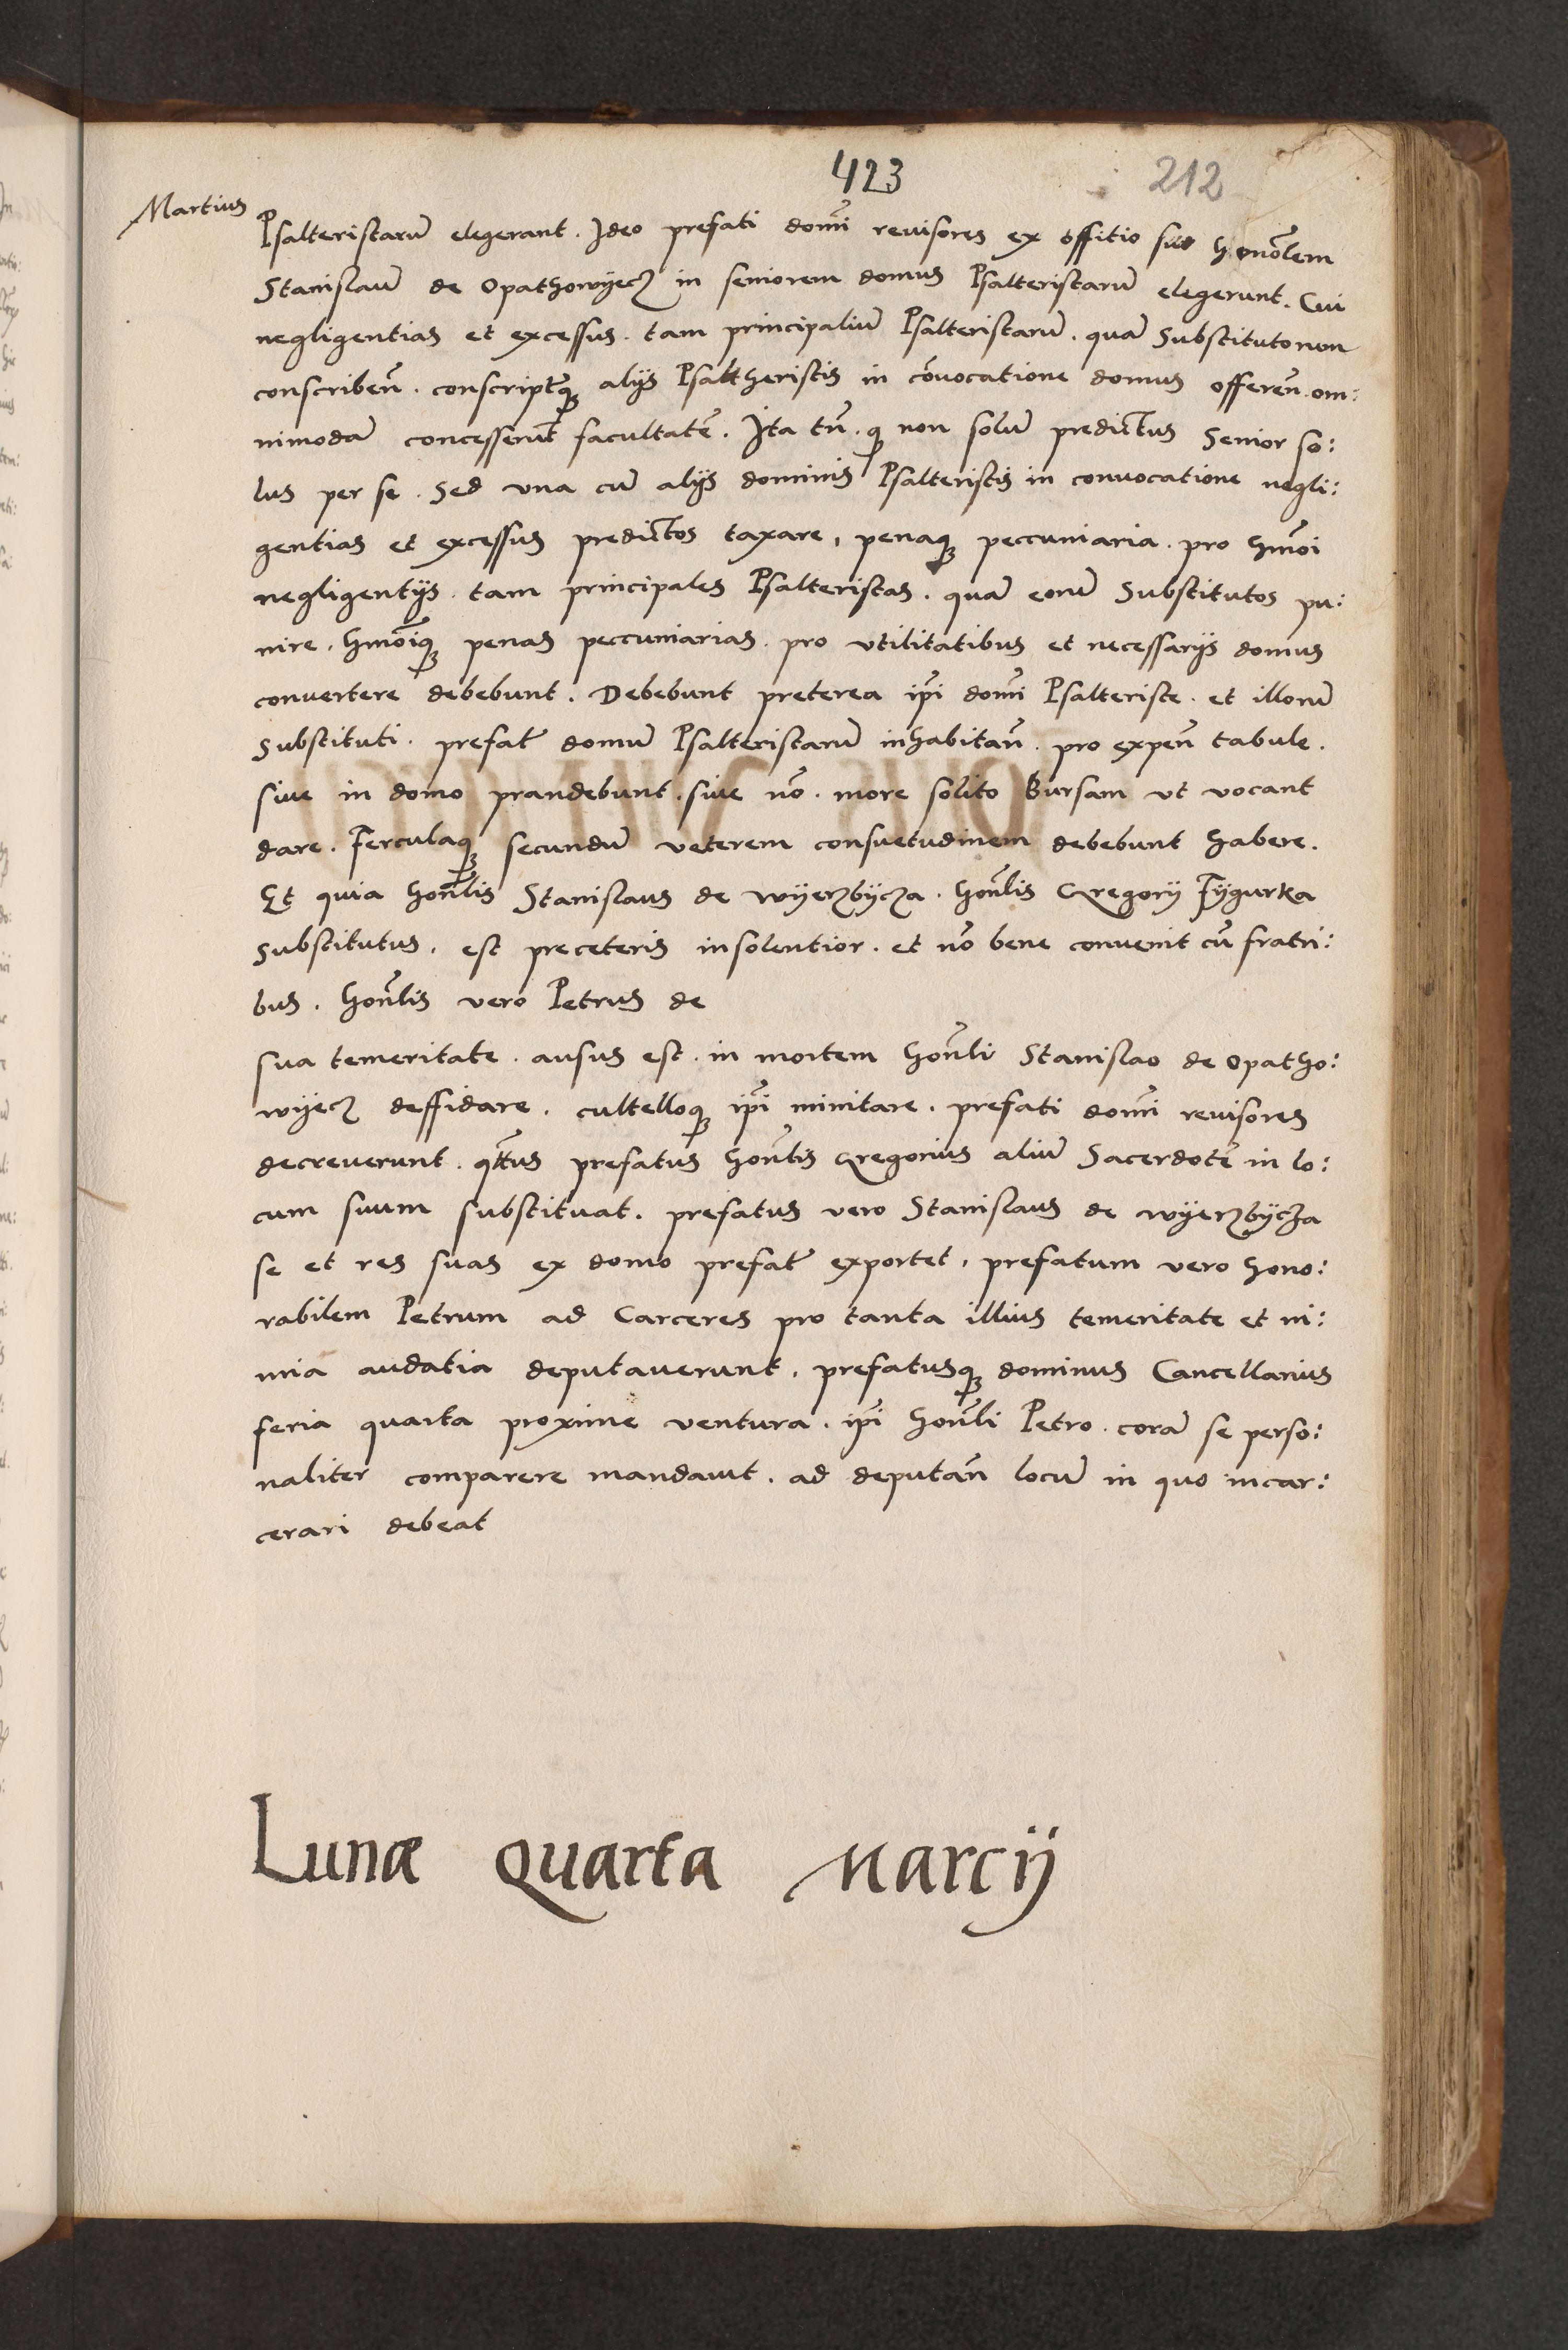 423
212
Martius
Psalteristarū elegerant. Ideo prefati domī revisores ex offitio suo honōlem
Stanislaū de Opathowyecz in seniorem domus Psalteristarū elegerunt. Cui
negligentias et excessus. tam principaliū Psalteristarū. quā Substitutorum
conscribeñ. conscriptq̨ alijs Psaltheristis in cōvocatione domus offereñ. om:
nimodā concesserūt facultatē. Ita tñ. q̨ non solū predictus Senior so:
lus per se. Sed una cū alijs dominis Psalteristis in convocatione negli:
gentias et excessus predictos taxare, penaq̨ peccuniaria. pro hmōi
negligentijs. tam principales Psalteristas. quā eorū Substitutos pu:
nire. hmōiq̨ penas peccuniarias. pro utilitatibus et necessarijs domus
convertere debebunt. Debebunt preterea ip̄i domī Psalteriste. et illorū
Substituti. prefat̄ domū Psalteristarū inhabitañ. pro expeñ tabule.
sive in domo prandebunt. sive nō. more solito Bursam ut vocant
dare. Ferculaq̨ secundū veterem consuetudinem debebunt habere.
Et quia honl̄is Stanislaus de wyerzbycza. honl̄is Gregorij Fygurka
Substitutus, est preceteris insolentior. et nō bene convenit cū fratri:
bus. honl̄is vero Petrus de
sua temeritate. ausus est. in mortem honl̄i Stanislao de Opatho:
wyecz deffidare. cultelloq̨ ip̄i minitare. prefati domī revisores
decreverunt. qt̄tus prefatus honl̄is Gregorius aliū Sacerdotē in lo:
cum suum substituat. prefatus vero Stanislaus de wyerzbycza
se et res suas ex domo prefat̄ exportet, prefatum vero hono:
rabilem Petrum ad Carceres pro tanta illius temeritate et ni:
mia audatia deputaverunt, prefatusq̨ dominus Cancellarius
feria quarta proxime ventura. ip̄i honl̄i Petro. corā se perso:
naliter comparere mandavit. ad deputañ locū in quo incar:
cerari debeat
Lunæ Quarta Marcij